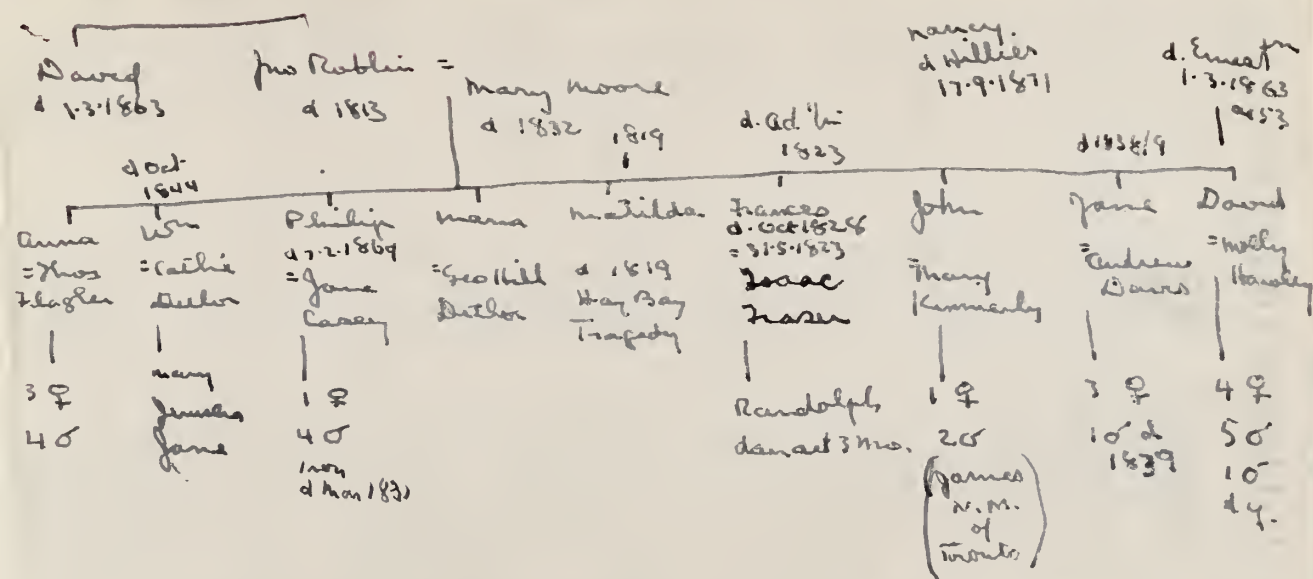 David
d 1.3.1863
Jno Roblin =
d 1813
Mary Moore
d 1832
nancy.
d Hillier
17.9.1871
d. Ernest Tn
1.3.1863
ae 53
d Oct
1844
1819
d. Ad. Tn
1823
d 1838/9
Anna
=Thos
Flagler
3 ♀
4 ♂
Wm
=Cathie
Detlor
mary
Jerusha
Jane
Philip
d 7.2.1869
=Jane
Casey
1 ♀
4 ♂
1 ron
d Mar 1831
Maria
=Geo Hill
Detlor
Matilda
d 1819
Hay Bay
Tragedy
Frances
d. Oct 1828
= 31.5.1823
Isaac
Fraser
Randolph
d an aet 3 mo.
John
=Mary
Kimmerly
1 ♀
2 ♂
(James
N.M.
of
Toronto)
Jane
=Andrew
Davis
3 ♀
1 ♂ d
1839
David
=Molly
Hawley
4 ♀
5 ♂
1 ♂
d y.